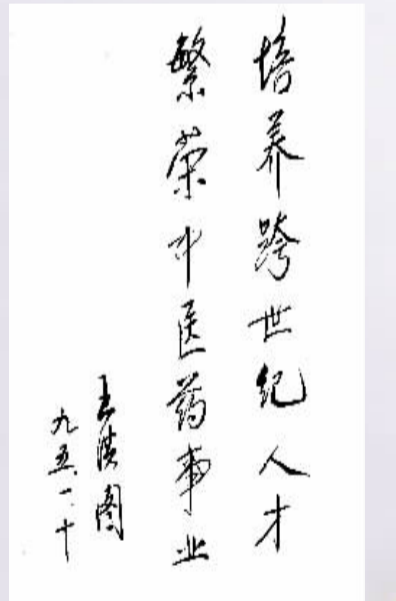 培养跨世纪人才
繁荣中医药事业
王洪图
九五.一.十